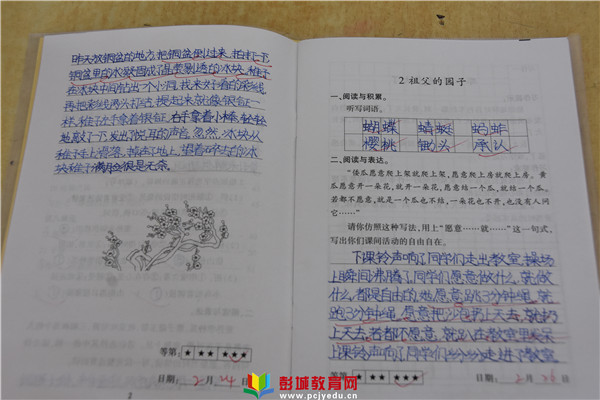 昨天放铜盆的地方,把铜盆倒过来,拍打一下
铜盆里的水跃雪成了晶莹剔透的冰块,稚子
在冰块中间钻出一个小洞,找来好看的彩线
再把彩线两头打结,提起来就像银钲一
样,稚子左手拿着银钲,右手拿着小棒,轻轻
地敲了一下,发出了悦耳的声音,忽然,冰块从
稚子手上滑落,掉在了地上,望着碎了的冰
块稚子满脸很是无奈。
等第:★ ★★ ★★★
日期:2月24日
2
2 祖父的园子
一、阅读与积累。
听写词语。
蝴蝶 蜻蜓 蚂蚱
樱桃 锄头 承认
二、阅读与表达。
“倭瓜愿意爬上架就爬上架,愿意爬上房就爬上房。黄
瓜愿意开一朵花,就开一朵花,愿意结一个瓜,就结一个瓜。
若都不愿意,就是一个瓜也不结,一朵花也不开,也没有人问
它……”
请你仿照这种写法,用上“愿意……就……”这一句式,
写出你们课间活动的自由自在。
下课铃声响了,同学们走出教室,操场
上瞬间沸腾了,同学们愿意做什么,就做
什么,都是自由的,她愿意跳3分钟绳,就
跳3分钟绳,愿意把沙包扔上天去,就扔
上天去,若都不愿意,就趴在教室里呆呆
上课铃声响了,同学们纷纷走进了教室
等第:★ ★★ ★★★
日期:2月26日
彭城教育网
www.pcjyedu.cn